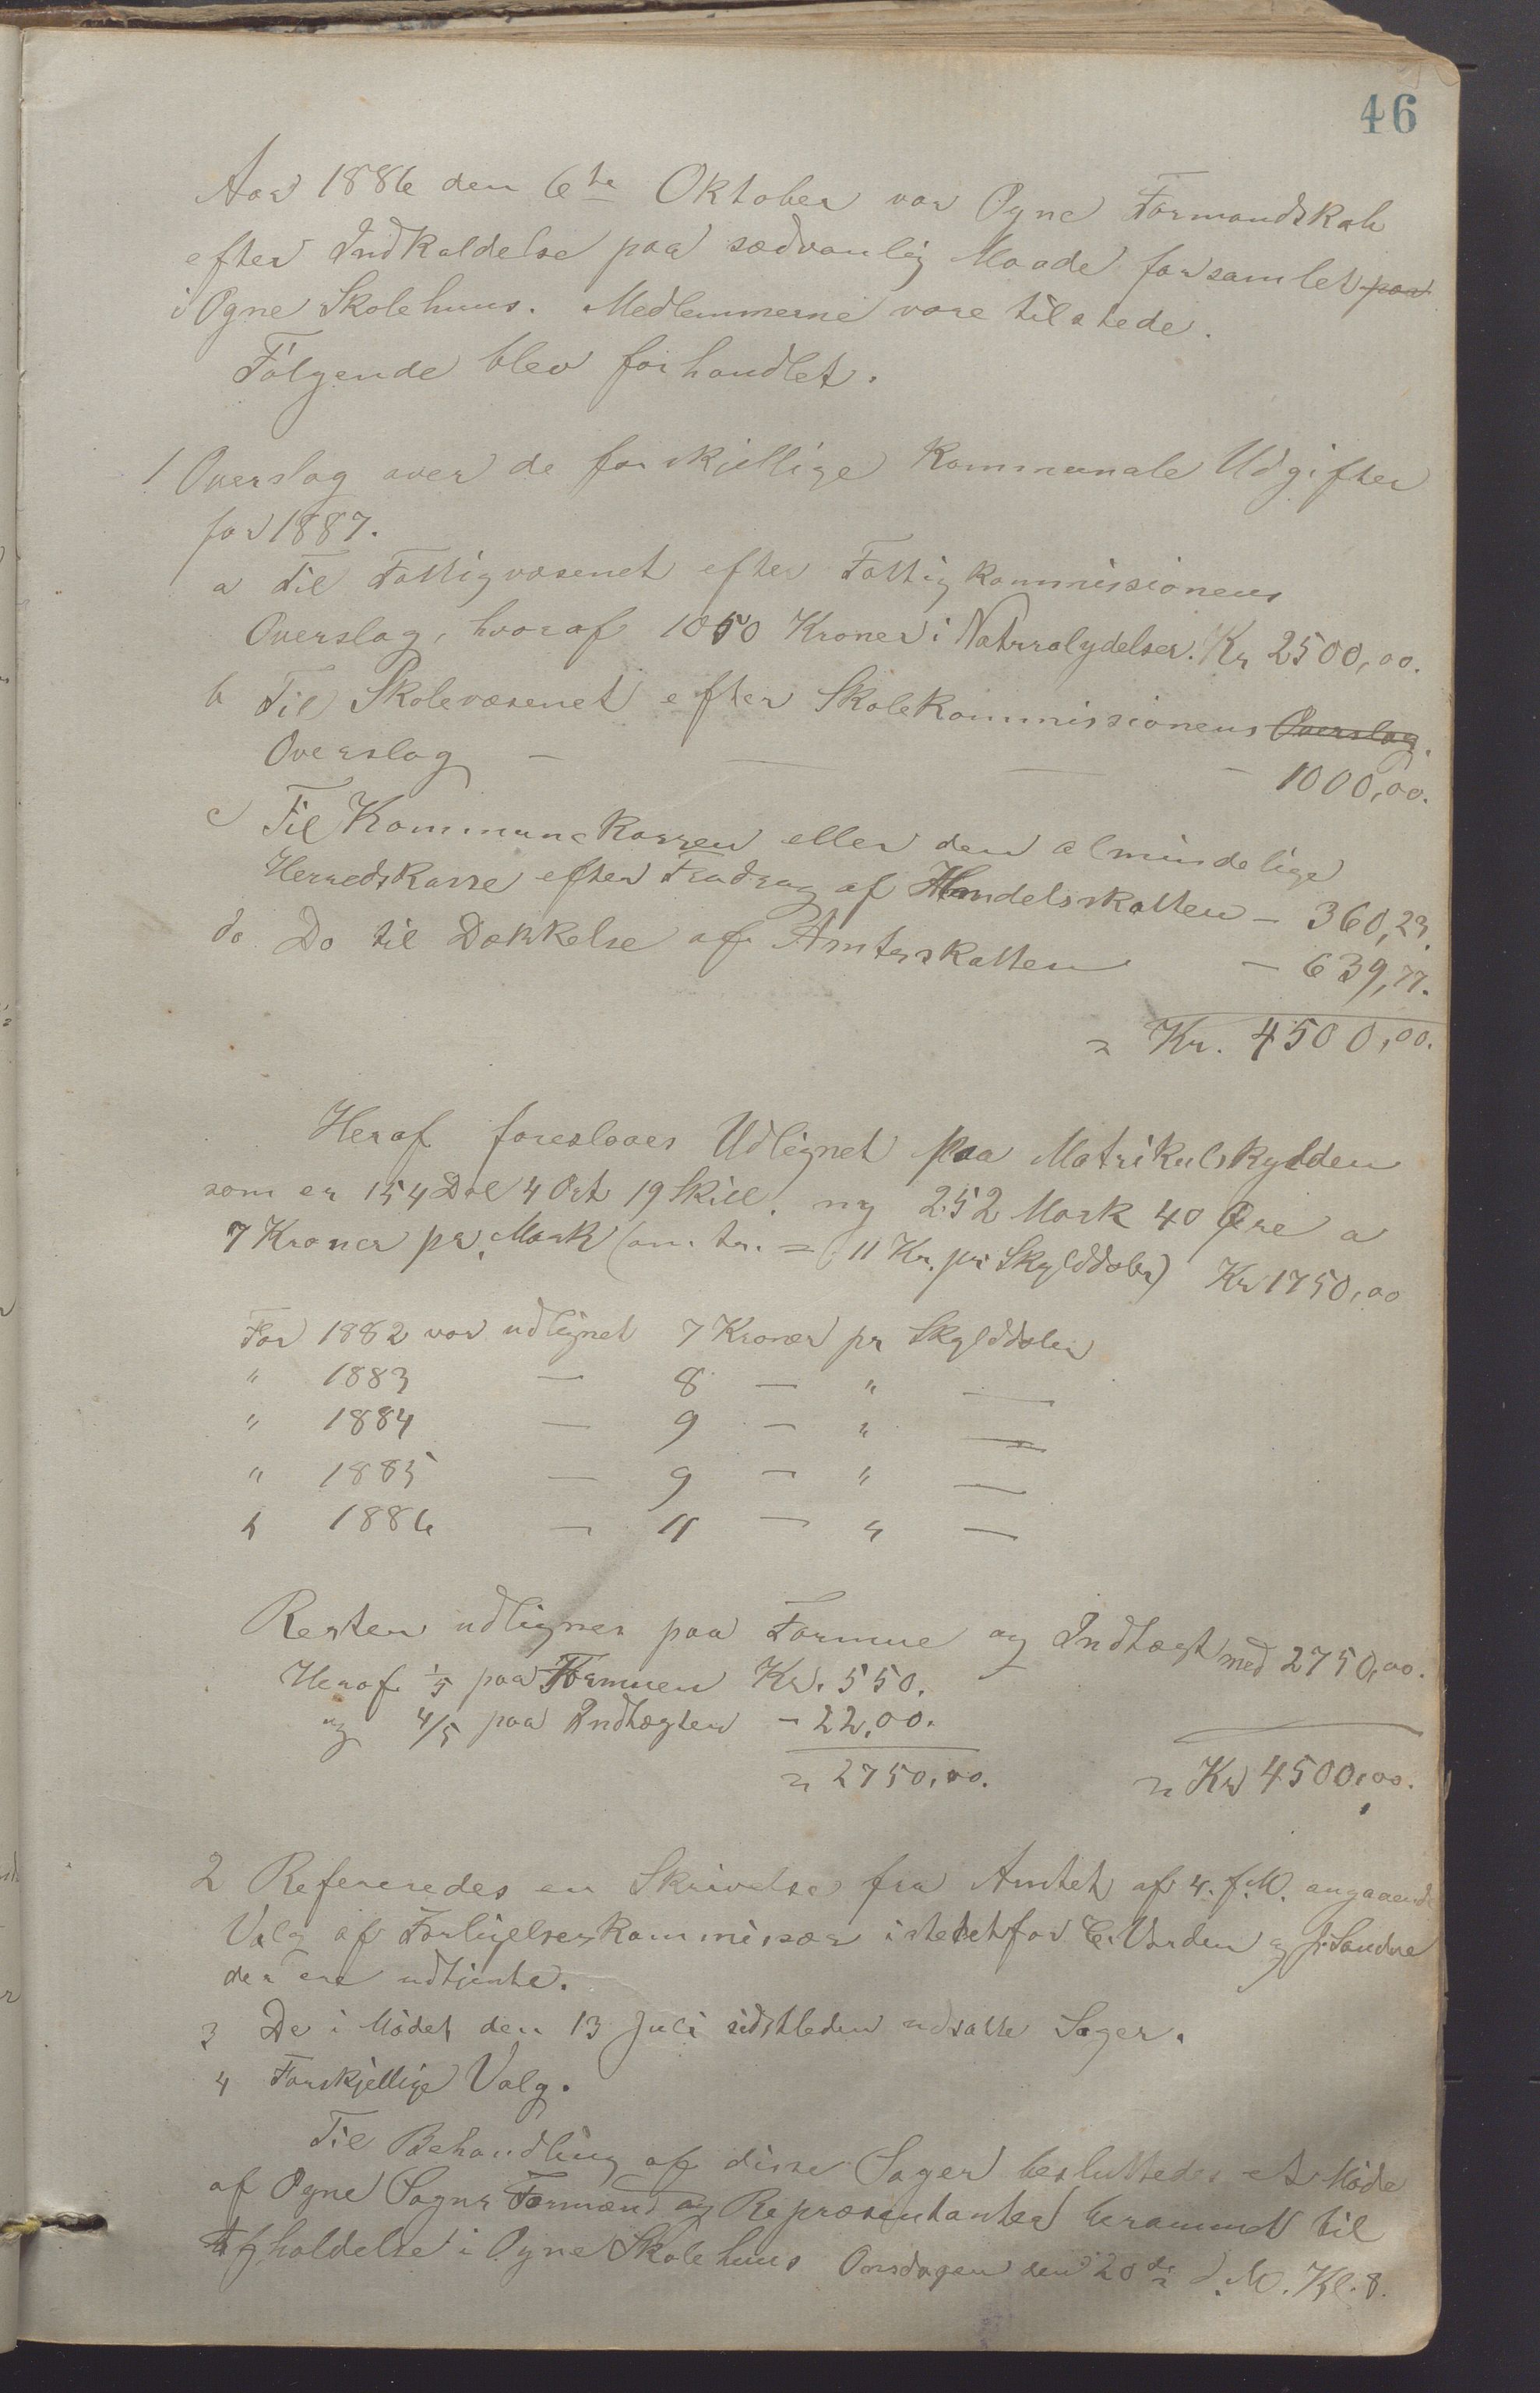 46
Aar 1886 den 6te Oktober var Ogne Formandskab
efter Indkaldelse paa sædvanlig Maade forsamlet paa
i Ogne Skolehuus. Medlemmerne vare tilstede.
Følgende blev forhandlet.
1 Overslag over de forskjellige Kommunale Udgifter
for 1887.
a Til Fattigvæsenet efter Fattigkommissionens
Overslag, hvoraf 1050 Kroner i Naturalydelser. Kr 2500,00.
b Til Skolevæsenet efter Skolekommissionens Overslag.
Overslag — — — — 1000,00.
c Til Kommunekassen eller den almindelige
Herredskasse efter Fradrag af Handelsskatten — 360,23.
do Do til Dækkelse af Amtsskatten — 639,77.
= Kr. 4500,00.
Heraf foreslaaes Udlignet paa Matrikulskylden
som er 154 Dal 4 Ort 19 Skill. ny 252 Mark 40 Øre a
7 Kroner pr. Mark (om tr. = 11 Kr. pr Skylddaler) Kr 1750,00
For 1882 var udlignet 7 Kroner pr Skylddaler
" 1883 — 8 — " —
" 1884 — 9 — " —
" 1885 — 9 — " —
" 1886 — 11 — " —
Resten udlignes paa Formue og Indtægt med 2750,00.
Heraf 1/5 paa Formuen Kr. 550.
og 4/5 paa Indtægten — 22,00.
= 2750,00. = Kr 4500,00.
2 Refereredes en Skrivelse fra Amtet af 4. f. M. angaaende
Valg af Forligelseskommissær istedetfor C. Varden og J. Sandve
der ere udtjente.
3 De i Mødet den 13 Juli sidstleden udsatte Sager.
4 Forskjellige Valg.
Til Behandling af disse Sager besluttedes et Møde
af Ogne Sogns Formænd og Repræsentanter berammet til
Afholdelse i Ogne Skolehuus Onsdagen den 20de d. M. Kl. 8.